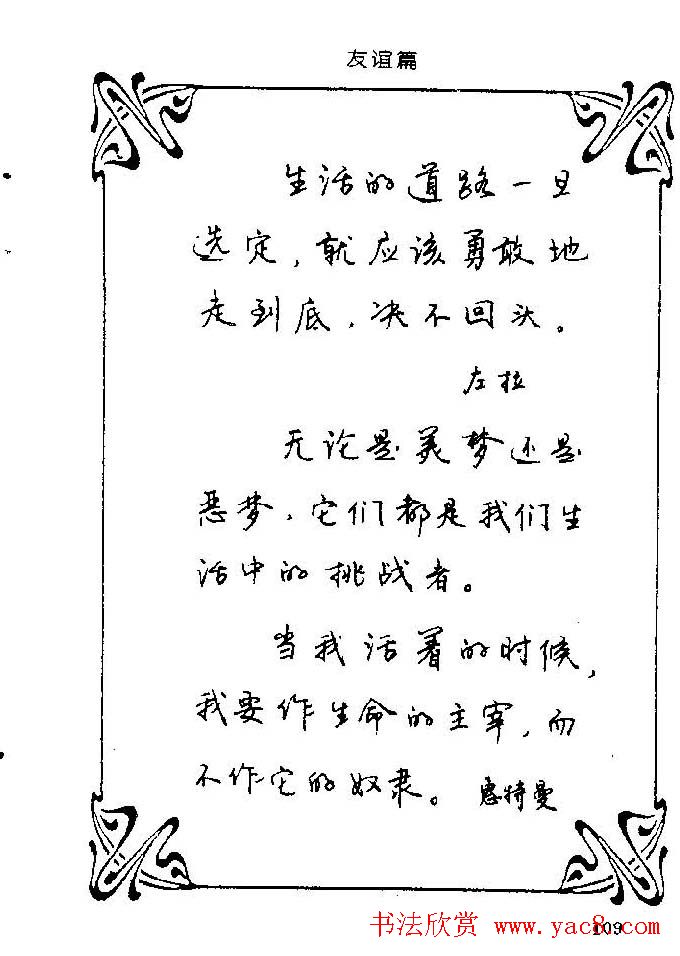 友谊篇
生活的道路一旦
选定，就应该勇敢地
走到底，决不回头。
左拉
无论是美梦还是
恶梦，它们都是我们生
活中的挑战者。
当我活着的时候，
我要作生命的主宰，而
不作它的奴隶。惠特曼
书法欣赏 www.yac8.com
109